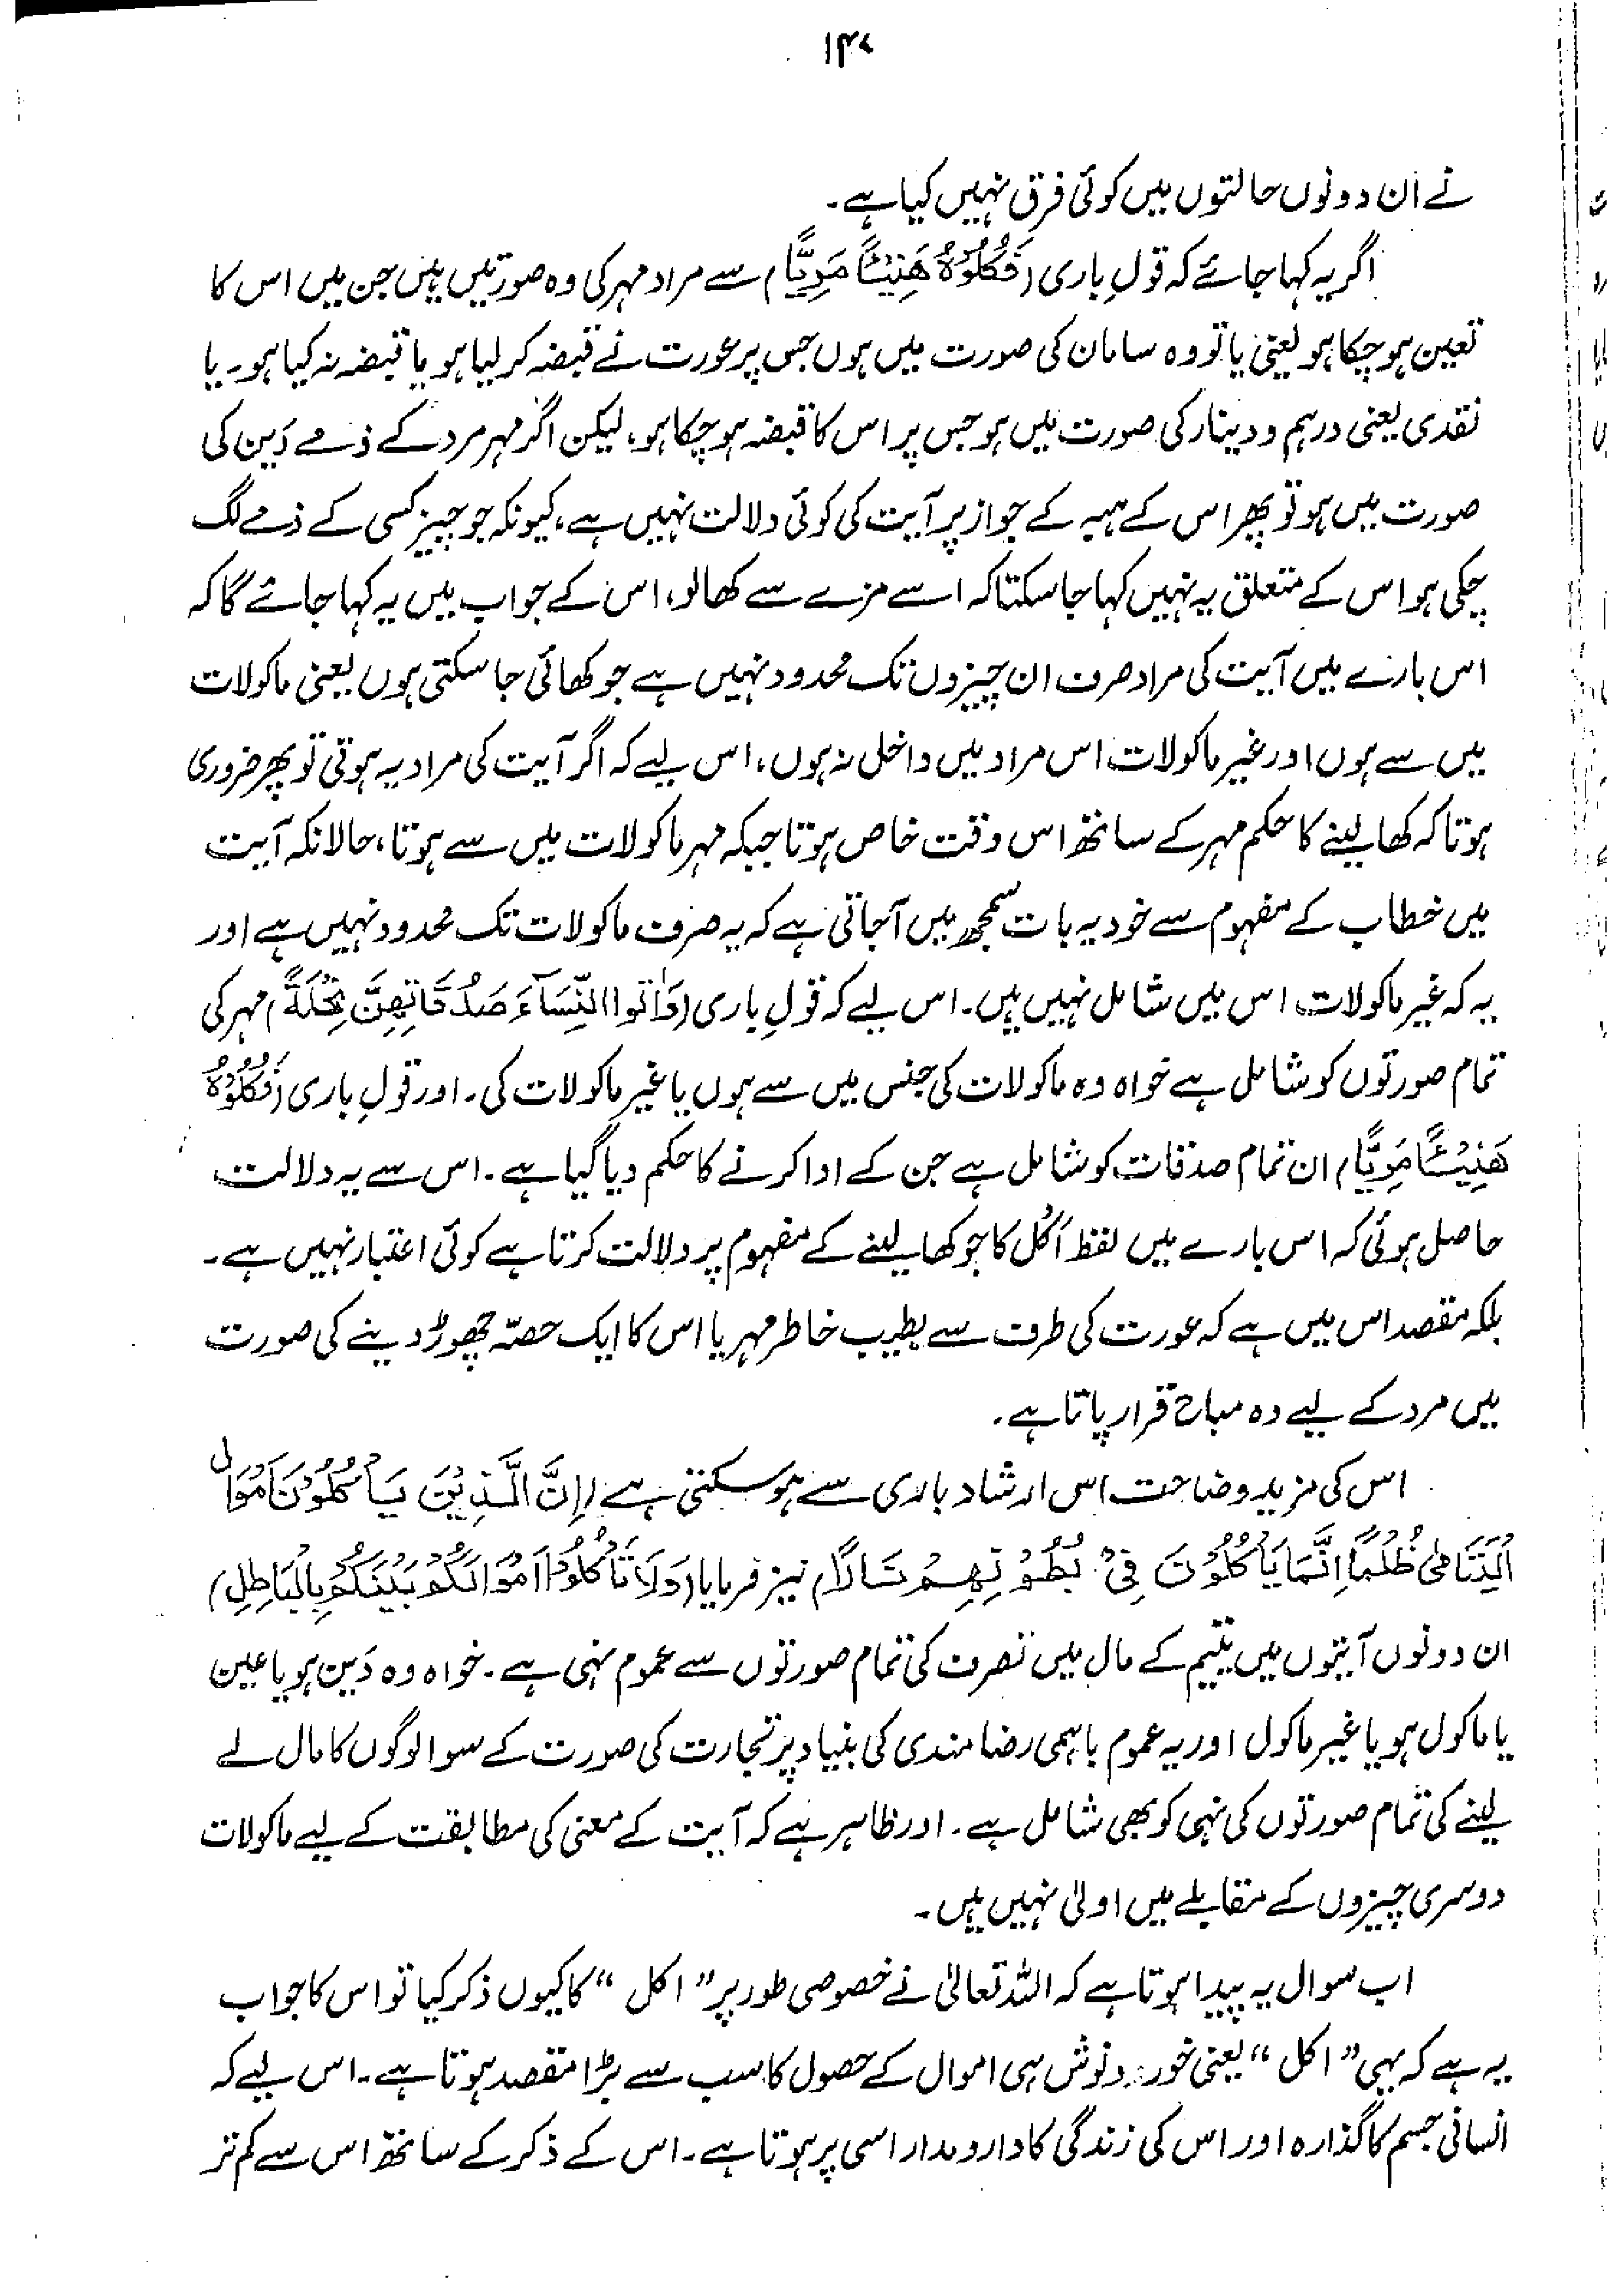 ۱۴۷
نے ان دونوں حالتوں میں کوئی فرق نہیں کیا ہے۔
اگر یہ کہا جائے کہ قولِ باری (فَكُلُوْهُ هَنِيْئًا مَرِيًّا) سے مراد مہر کی وہ صورتیں ہیں جن میں اس کا
تعین ہو چکا ہو یعنی یا تو وہ سامان کی صورت میں ہوں جس پر عورت نے قبضہ کر لیا ہو یا قبضہ نہ کیا ہو۔ یا
نقدی یعنی درہم و دینار کی صورت میں ہو جس پر اس کا قبضہ ہو چکا ہو، لیکن اگر مہر مرد کے ذمے دَین کی
صورت میں ہو تو پھر اس کے ہبہ کے جواز پر آیت کی کوئی دلالت نہیں ہے، کیونکہ جو چیز کسی کے ذمے لگ
چکی ہو اس کے متعلق یہ نہیں کہا جا سکتا کہ اسے مزے سے کھا لو، اس کے جواب میں یہ کہا جائے گا کہ
اس بارے میں آیت کی مراد صرف ان چیزوں تک محدود نہیں ہے جو کھائی جا سکتی ہوں یعنی ماکولات
میں سے ہوں اور غیر ماکولات اس مراد میں داخل نہ ہوں، اس لیے کہ اگر آیت کی مراد یہ ہوتی تو پھر ضروری
ہوتا کہ کھا لینے کا حکم مہر کے ساتھ اس وقت خاص ہوتا جبکہ مہر ماکولات میں سے ہوتا، حالانکہ آیت
میں خطاب کے مفہوم سے خود یہ بات سمجھ میں آجاتی ہے کہ یہ صرف ماکولات تک محدود نہیں ہے اور
یہ کہ غیر ماکولات اس میں شامل نہیں ہیں۔ اس لیے کہ قولِ باری (وَاٰتُوا النِّسَآءَ صَدُقَاتِهِنَّ نِحْلَةً) مہر کی
تمام صورتوں کو شامل ہے خواہ وہ ماکولات کی جنس میں سے ہوں یا غیر ماکولات کی۔ اور قولِ باری (فَكُلُوْهُ
هَنِيْئًا مَرِيًّا) ان تمام صدقات کو شامل ہے جن کے ادا کرنے کا حکم دیا گیا ہے۔ اس سے یہ دلالت
حاصل ہوئی کہ اس بارے میں لفظ اَکْل کا جو کھا لینے کے مفہوم پر دلالت کرتا ہے کوئی اعتبار نہیں ہے۔
بلکہ مقصد اس میں ہے کہ عورت کی طرف سے بطیب خاطر مہر یا اس کا ایک حصّہ چھوڑ دینے کی صورت
میں مرد کے لیے وہ مباح قرار پاتا ہے۔
اس کی مزید وضاحت اس ارشاد باری سے ہو سکتی ہے (اِنَّ الَّذِيْنَ يَأْكُلُوْنَ اَمْوَالَ
الْيَتَامٰى ظُلْمًا اِنَّمَا يَأْكُلُوْنَ فِيْ بُطُوْنِهِمْ نَارًا) نیز فرمایا (وَلَا تَأْكُلُوْا اَمْوَالَكُمْ بَيْنَكُمْ بِالْبَاطِلِ)
ان دونوں آیتوں میں یتیم کے مال میں تصرف کی تمام صورتوں سے عموم نہی ہے۔ خواہ وہ دَین ہو یا عین
یا ماکول ہو یا غیر ماکول اور یہ عموم باہمی رضامندی کی بنیاد پر تجارت کی صورت کے سوا لوگوں کا مال لے
لینے کی تمام صورتوں کی نہی کو بھی شامل ہے۔ اور ظاہر ہے کہ آیت کے معنی کی مطابقت کے لیے ماکولات
دوسری چیزوں کے مقابلے میں اولیٰ نہیں ہیں۔
اب سوال یہ پیدا ہوتا ہے کہ اللہ تعالیٰ نے خصوصی طور پر ”اکل“ کا کیوں ذکر کیا تو اس کا جواب
یہ ہے کہ یہی ”اکل“ یعنی خور و نوش ہی اموال کے حصول کا سب سے بڑا مقصد ہوتا ہے۔ اس لیے کہ
انسانی جسم کا گذارہ اور اس کی زندگی کا دار و مدار اسی پر ہوتا ہے۔ اس کے ذکر کے ساتھ اس سے کم تر